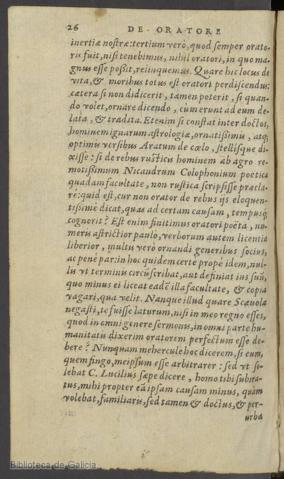 26 DE ORATORE
inertiæ nostræ: tertium verò, quod semper orato-
ris fuit, nisi tenebimus, nihil oratori, in quo ma-
gnus esse possit, relinquemus. Quare hic locus de
vita, & moribus totus est oratori perdiscendus:
cætera si non didicerit, tamen poterit, si quan-
do volet, ornare dicendo, cùm erunt ad eum de-
lata, & tradita. Etenim si constat inter doctos,
hominem ignarum astrologiæ, ornatissimis, atq;
optimis versibus Aratum de cælo, stellisque di-
xisse: si de rebus rusticis hominem ab agro re-
motissimum Nicandrum Colophonium poetica
quadam facultate, non rustica scripsisse præcla-
rè: quid est, cur non orator de rebus iis eloquen-
tissimè dicat, quas ad certam causam, tempusq;
cognorit? Est enim finitimus oratori poëta, nu-
meris astrictior paulo, verborum autem licentia
liberior, multis verò ornandi generibus socius,
ac penè par: in hoc quidem certè propè idem, nul-
lis vt terminis circũscribat, aut definiat ius suũ,
quo minus ei liceat eadẽ illa facultate, & copia
vagari, qua velit. Nanque illud quare Scæuola
negasti, te fuisse laturum, nisi in meo regno esses,
quod in omni genere sermonis, in omni parte hu-
manitatis dixerim oratorem perfectum esse de-
bere? Nunquam mehercule hoc dicerem, si eum,
quem fingo, meipsum esse arbitrarer: sed vt so-
lebat C. Lucilius sæpe dicere, homo tibi subira-
tus, mihi propter eã ipsam causam minus, quàm
volebat, familiaris, sed tamen & doctus, & per-
urba
Biblioteca de Galicia